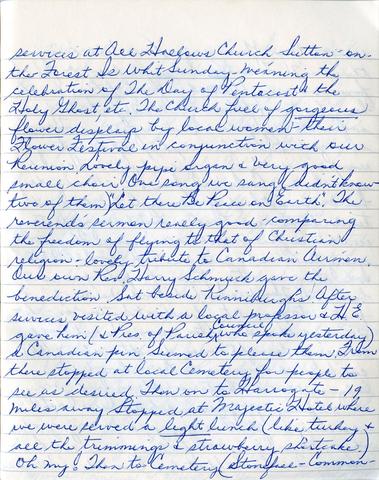 services at All Hallows Church Sutton-on-
the Forest Is Whit Sunday - Meaning the
celebration of The Day of Pentacost & the
Holy Ghost etc. The Church full of gorgeous
flower displays by local women - their
Flower Festival in conjunction with our
Reunion Lovely pipe organ & very good
small choir One song we sang (didn't know
two of them) "Let there be Peace on Earth". The
reverends sermon really good - comparing
the freedom of flying to that of Christian
religion - lovely tribute to Canadian Airmen.
Our own Rev. Harry Schmuck gave the
benediction Sat beside Kinniburghs After
services visited with a local professor & H.E.
gave him (& Pres. of Parish Council who spoke yesterday)
a Canadian pin Seemed to please them From
there stopped at local Cemetery for people to
see as desired Then on to Harrogate - 19
miles away Stopped at Majestic Hotel where
we were served a light lunch (like turkey &
all the trimmings & strawberry shortcake)
Oh my! Then to Cemetery (Stonefall - Common-